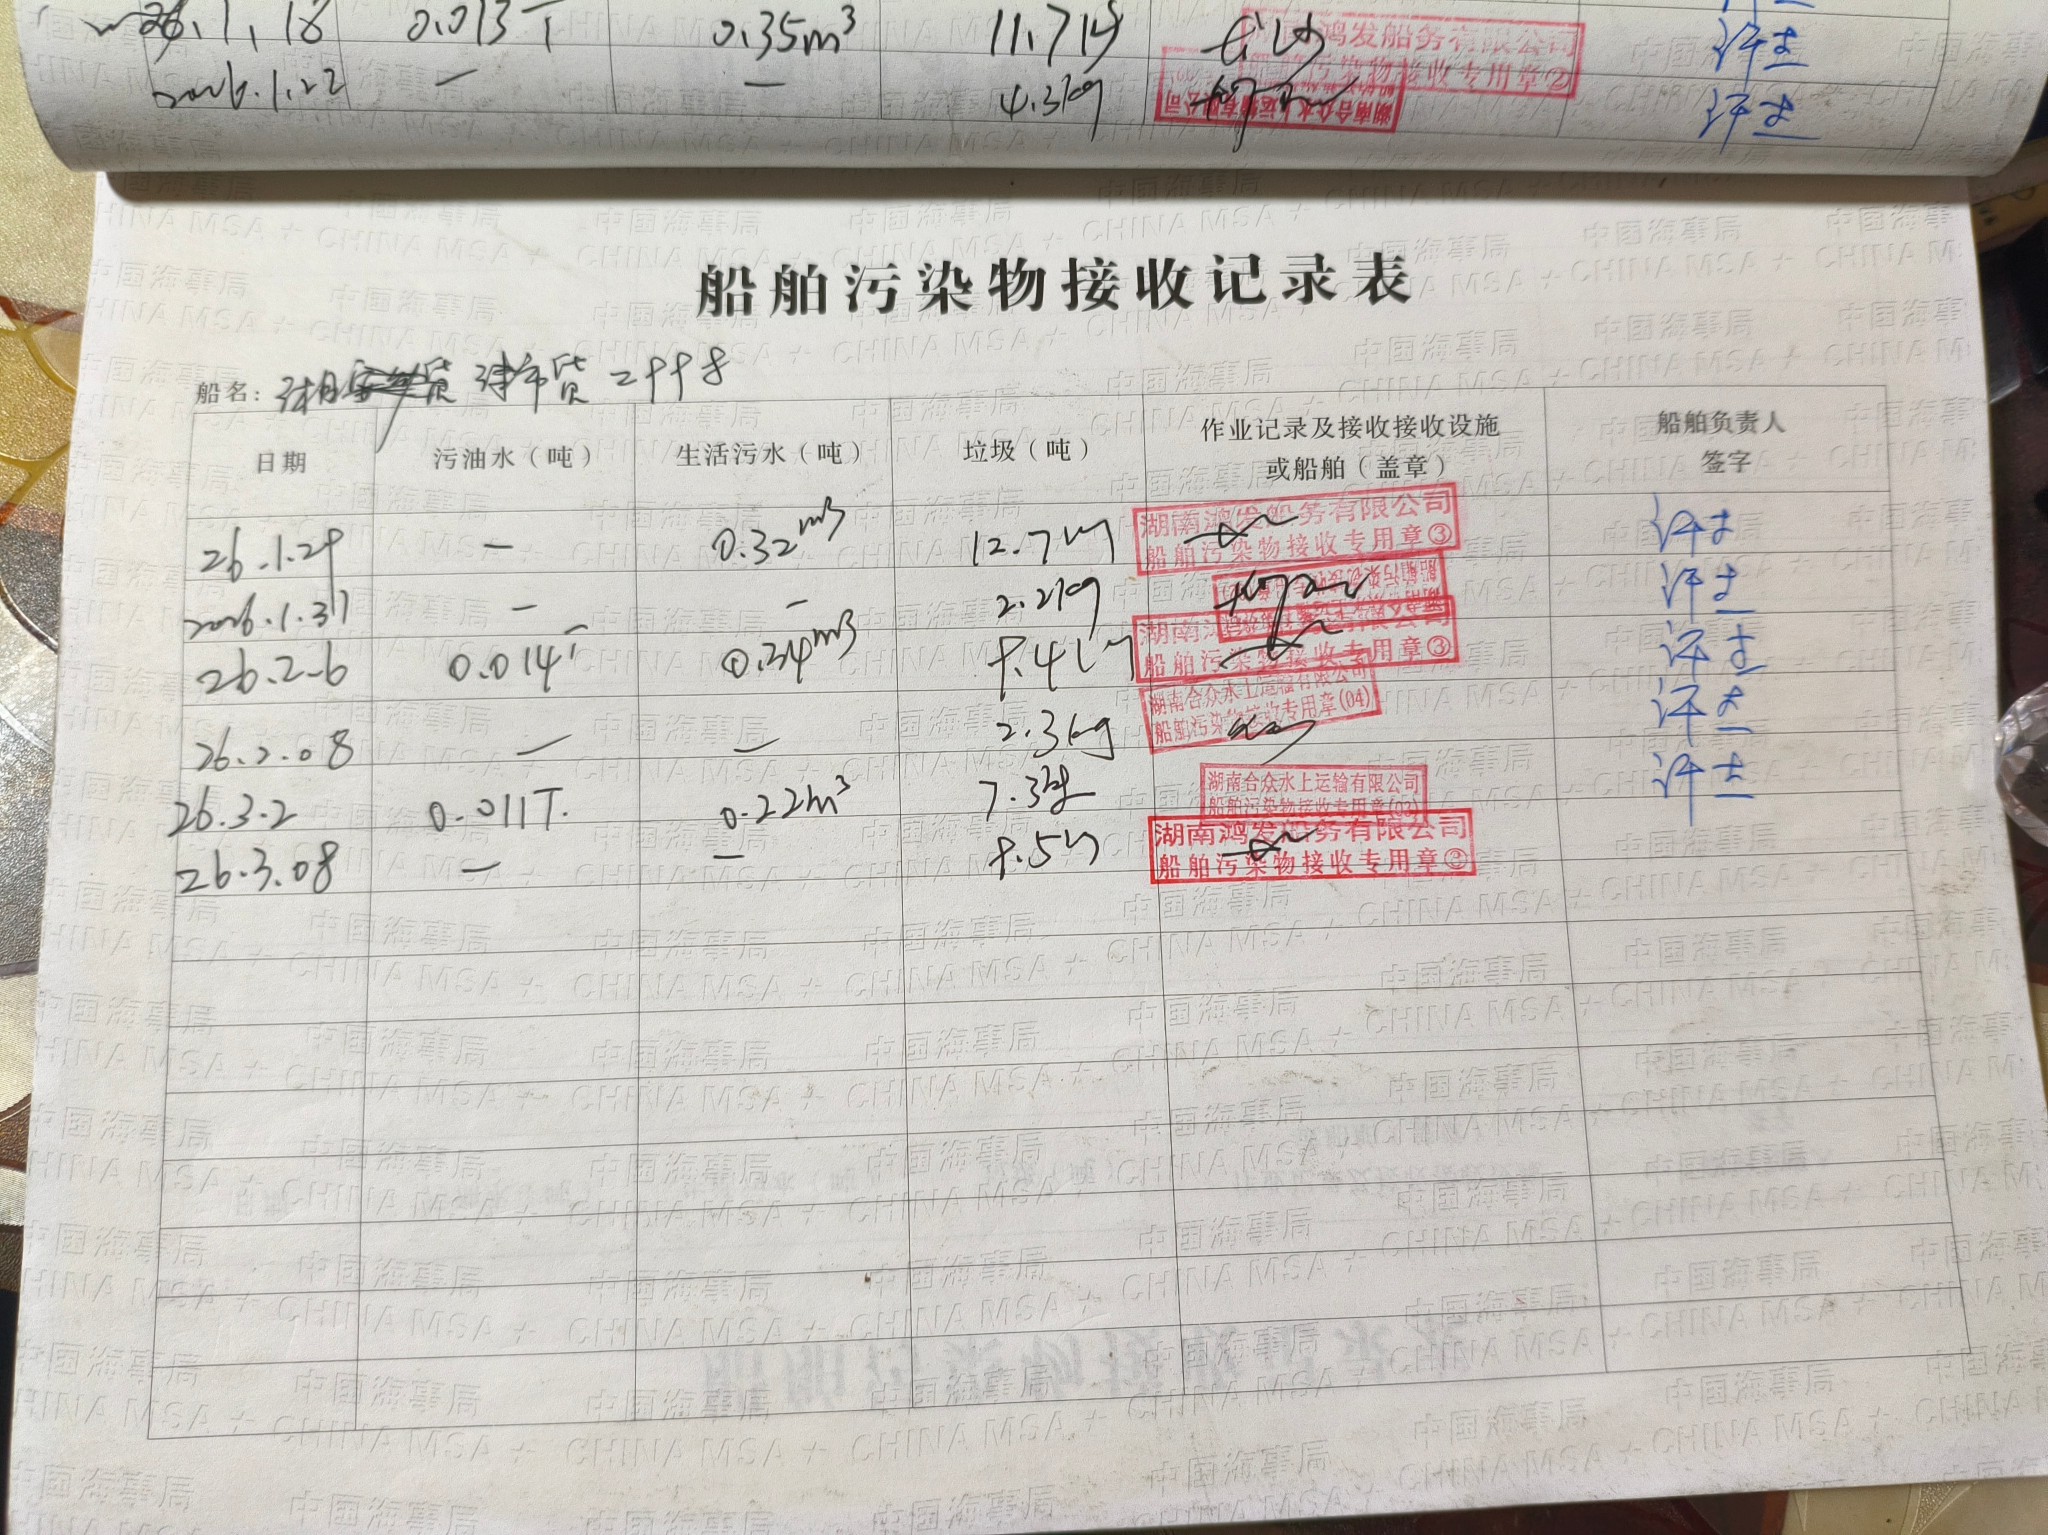 26.1.18 0.013T 0.35m³ 11.7kg 鸿发船务有限公司 许士
污染物接收专用章②
2026.1.22 — — 4.3kg 湖南合众水上运输有限公司 许士
船舶污染物接收记录表
船名: 津市货
日期 污油水（吨） 生活污水（吨） 垃圾（吨） 作业记录及接收接收设施 船舶负责人
或船舶（盖章） 签字
26.1.29 — 0.32m3 12.7kg 湖南鸿发船务有限公司 许士
船舶污染物接收专用章③
2026.1.31 — — 2.2kg 许士
26.2.6 0.014T 0.34m3 9.4kg 湖南 有限公司 许士
船舶污染物接收专用章③
26.2.08 — — 2.3kg 湖南合众水上运输有限公司 许士
船舶污染物接收专用章(04)
26.3.2 0.011T. 0.22m³ 7.3kg 湖南合众水上运输有限公司 许士
船舶污染物接收专用章(03)
26.3.08 — — 8.5kg 湖南鸿发船务有限公司
船舶污染物接收专用章③
中国海事局
CHINA MSA